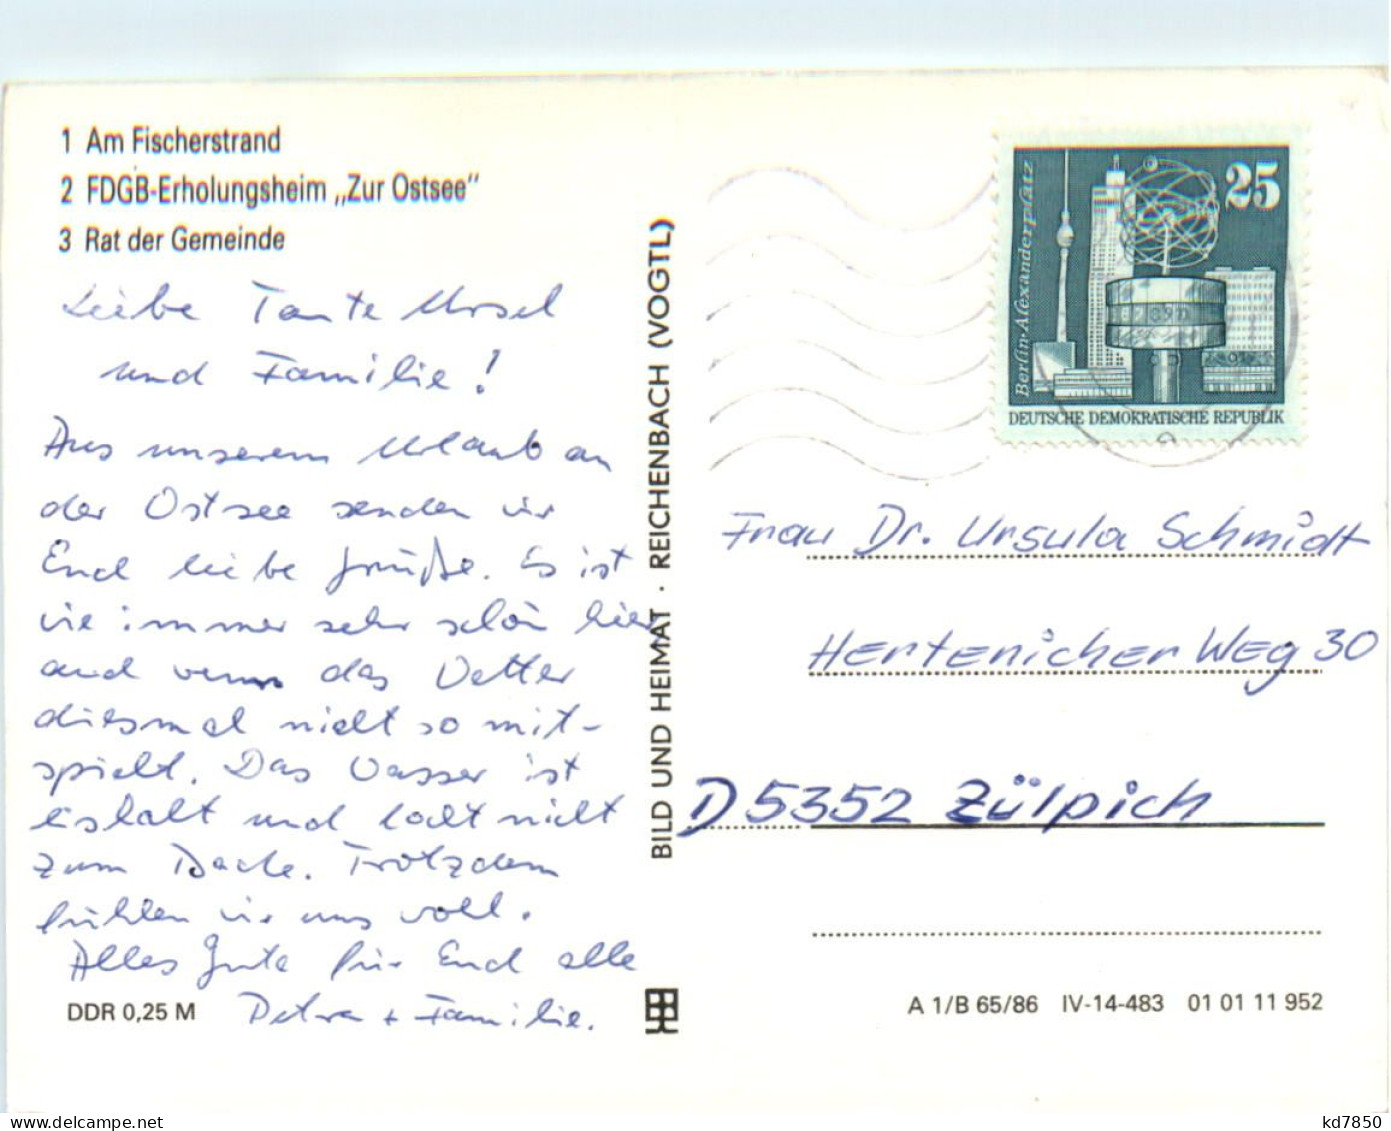 1 Am Fischerstrand
2 FDGB-Erholungsheim „Zur Ostsee“
3 Rat der Gemeinde
Liebe Tante Ursel
und Familie!
Aus unserem Urlaub an
der Ostsee senden wir
Euch liebe Grüße. Es ist
wie immer sehr schön hier
auch wenn das Wetter
diesmal nicht so mit-
spielt. Das Wasser ist
eiskalt und lockt nicht
zum Bade. Trotzdem
fühlen wir uns wohl.
Alles Gute für Euch alle
Petra + Familie.
DDR 0,25 M
BILD UND HEIMAT · REICHENBACH (VOGTL)
25
Berlin-Alexanderplatz
DEUTSCHE DEMOKRATISCHE REPUBLIK
Frau Dr. Ursula Schmidt
Hertenicher Weg 30
D 5352 Zülpich
A 1/B 65/86 IV-14-483 01 01 11 952
kd7850